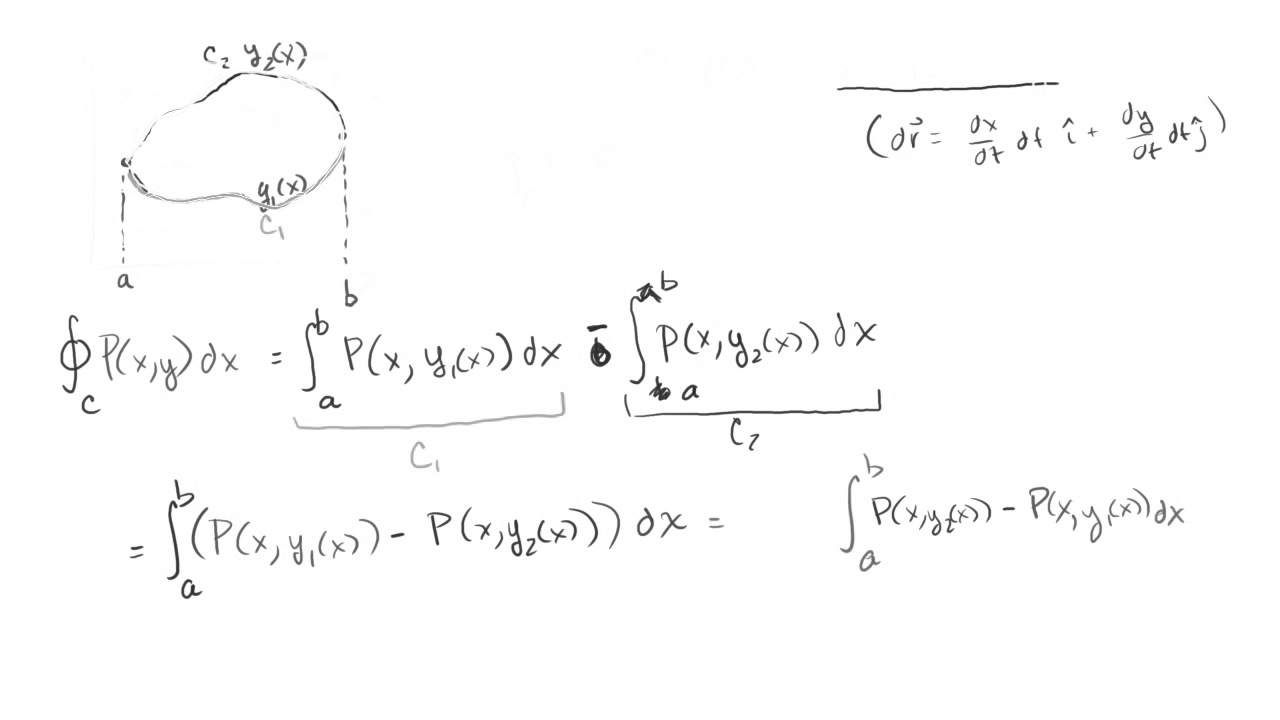 C₂ y₂(x)
(dr⃗ = dx/dt dt î + dy/dt dt ĵ)
y₁(x)
C₁
a
b
∮_C P(x,y) dx = ∫_a^b P(x, y₁(x)) dx - ∫_a^b P(x, y₂(x)) dx
C₁ C₂
= ∫_a^b (P(x, y₁(x)) - P(x, y₂(x))) dx = ∫_a^b P(x, y₂(x)) - P(x, y₁(x)) dx